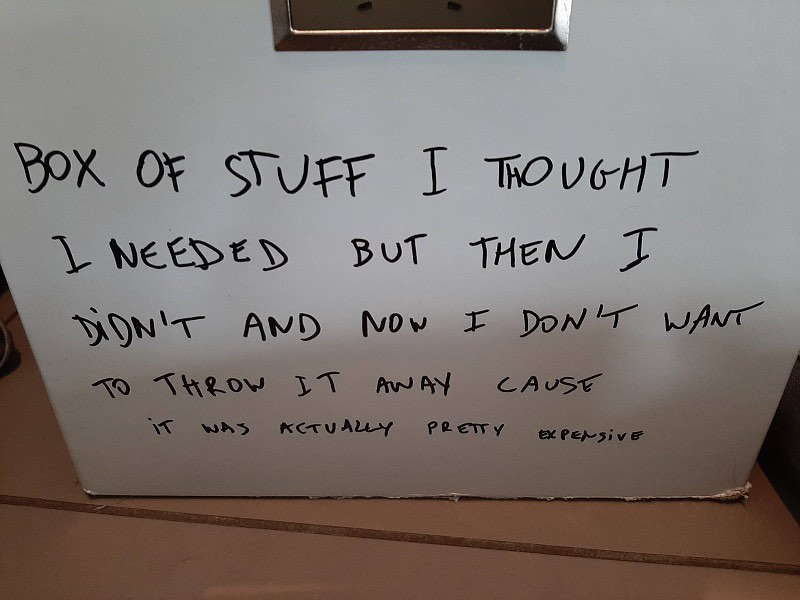 BOX OF STUFF I THOUGHT
I NEEDED BUT THEN I
DiDN'T AND NOW I DON'T WANT
TO THROW IT AWAY CAUSE
iT WAS ACTUALLY PRETTY EXPENSiVE